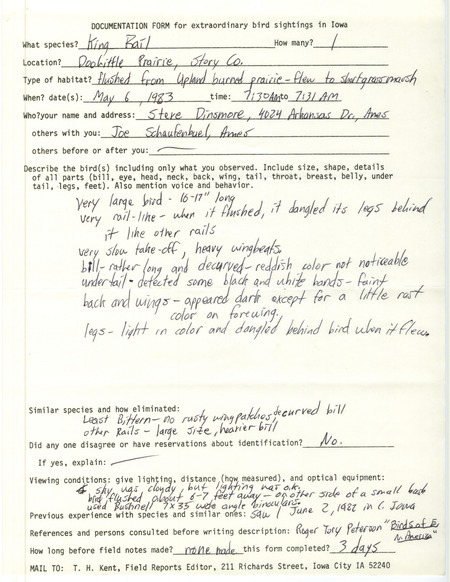 DOCUMENTATION FORM for extraordinary bird sightings in Iowa
What species? King Rail How many? 1
Location? Doolittle Prairie, Story Co.
Type of habitat? flushed from Upland burned prairie - flew to shortgrass marsh
When? date(s): May 6, 1983 time: 7:30 AM to 7:31 AM
Who?your name and address: Steve Dinsmore, 4024 Arkansas Dr, Ames
others with you: Joe Schaufenbuel, Ames
others before or after you:
Describe the bird(s) including only what you observed. Include size, shape, details
of all parts (bill, eye, head, neck, back, wing, tail, throat, breast, belly, under
tail, legs, feet). Also mention voice and behavior.
very large bird - 16-17" long
very rail-like - when it flushed, it dangled its legs behind
it like other rails
very slow take-off, heavy wingbeats
bill - rather long and decurved - reddish color not noticeable
undertail - detected some black and white bands - faint
back and wings - appeared dark except for a little rust
color on forewing.
legs - light in color and dangled behind bird when it flew.
Similar species and how eliminated:
Least Bittern - no rusty wing patches, decurved bill
other Rails - large size, heavier bill
Did any one disagree or have reservations about identification? No.
If yes, explain:
Viewing conditions: give lighting, distance (how measured), and optical equipment:
sky was cloudy, but lighting was o.k.
bird flushed about 6-7 feet away - on other side of a small
used Bushnell 7x35 wide angle binoculars.
Previous experience with species and similar ones: saw 1 June 2, 1982 in C. Iowa
References and persons consulted before writing description: Roger Tory Peterson "Birds of E
N America"
How long before field notes made? none made this form completed? 3 days
MAIL TO: T. H. Kent, Field Reports Editor, 211 Richards Street, Iowa City IA 52240